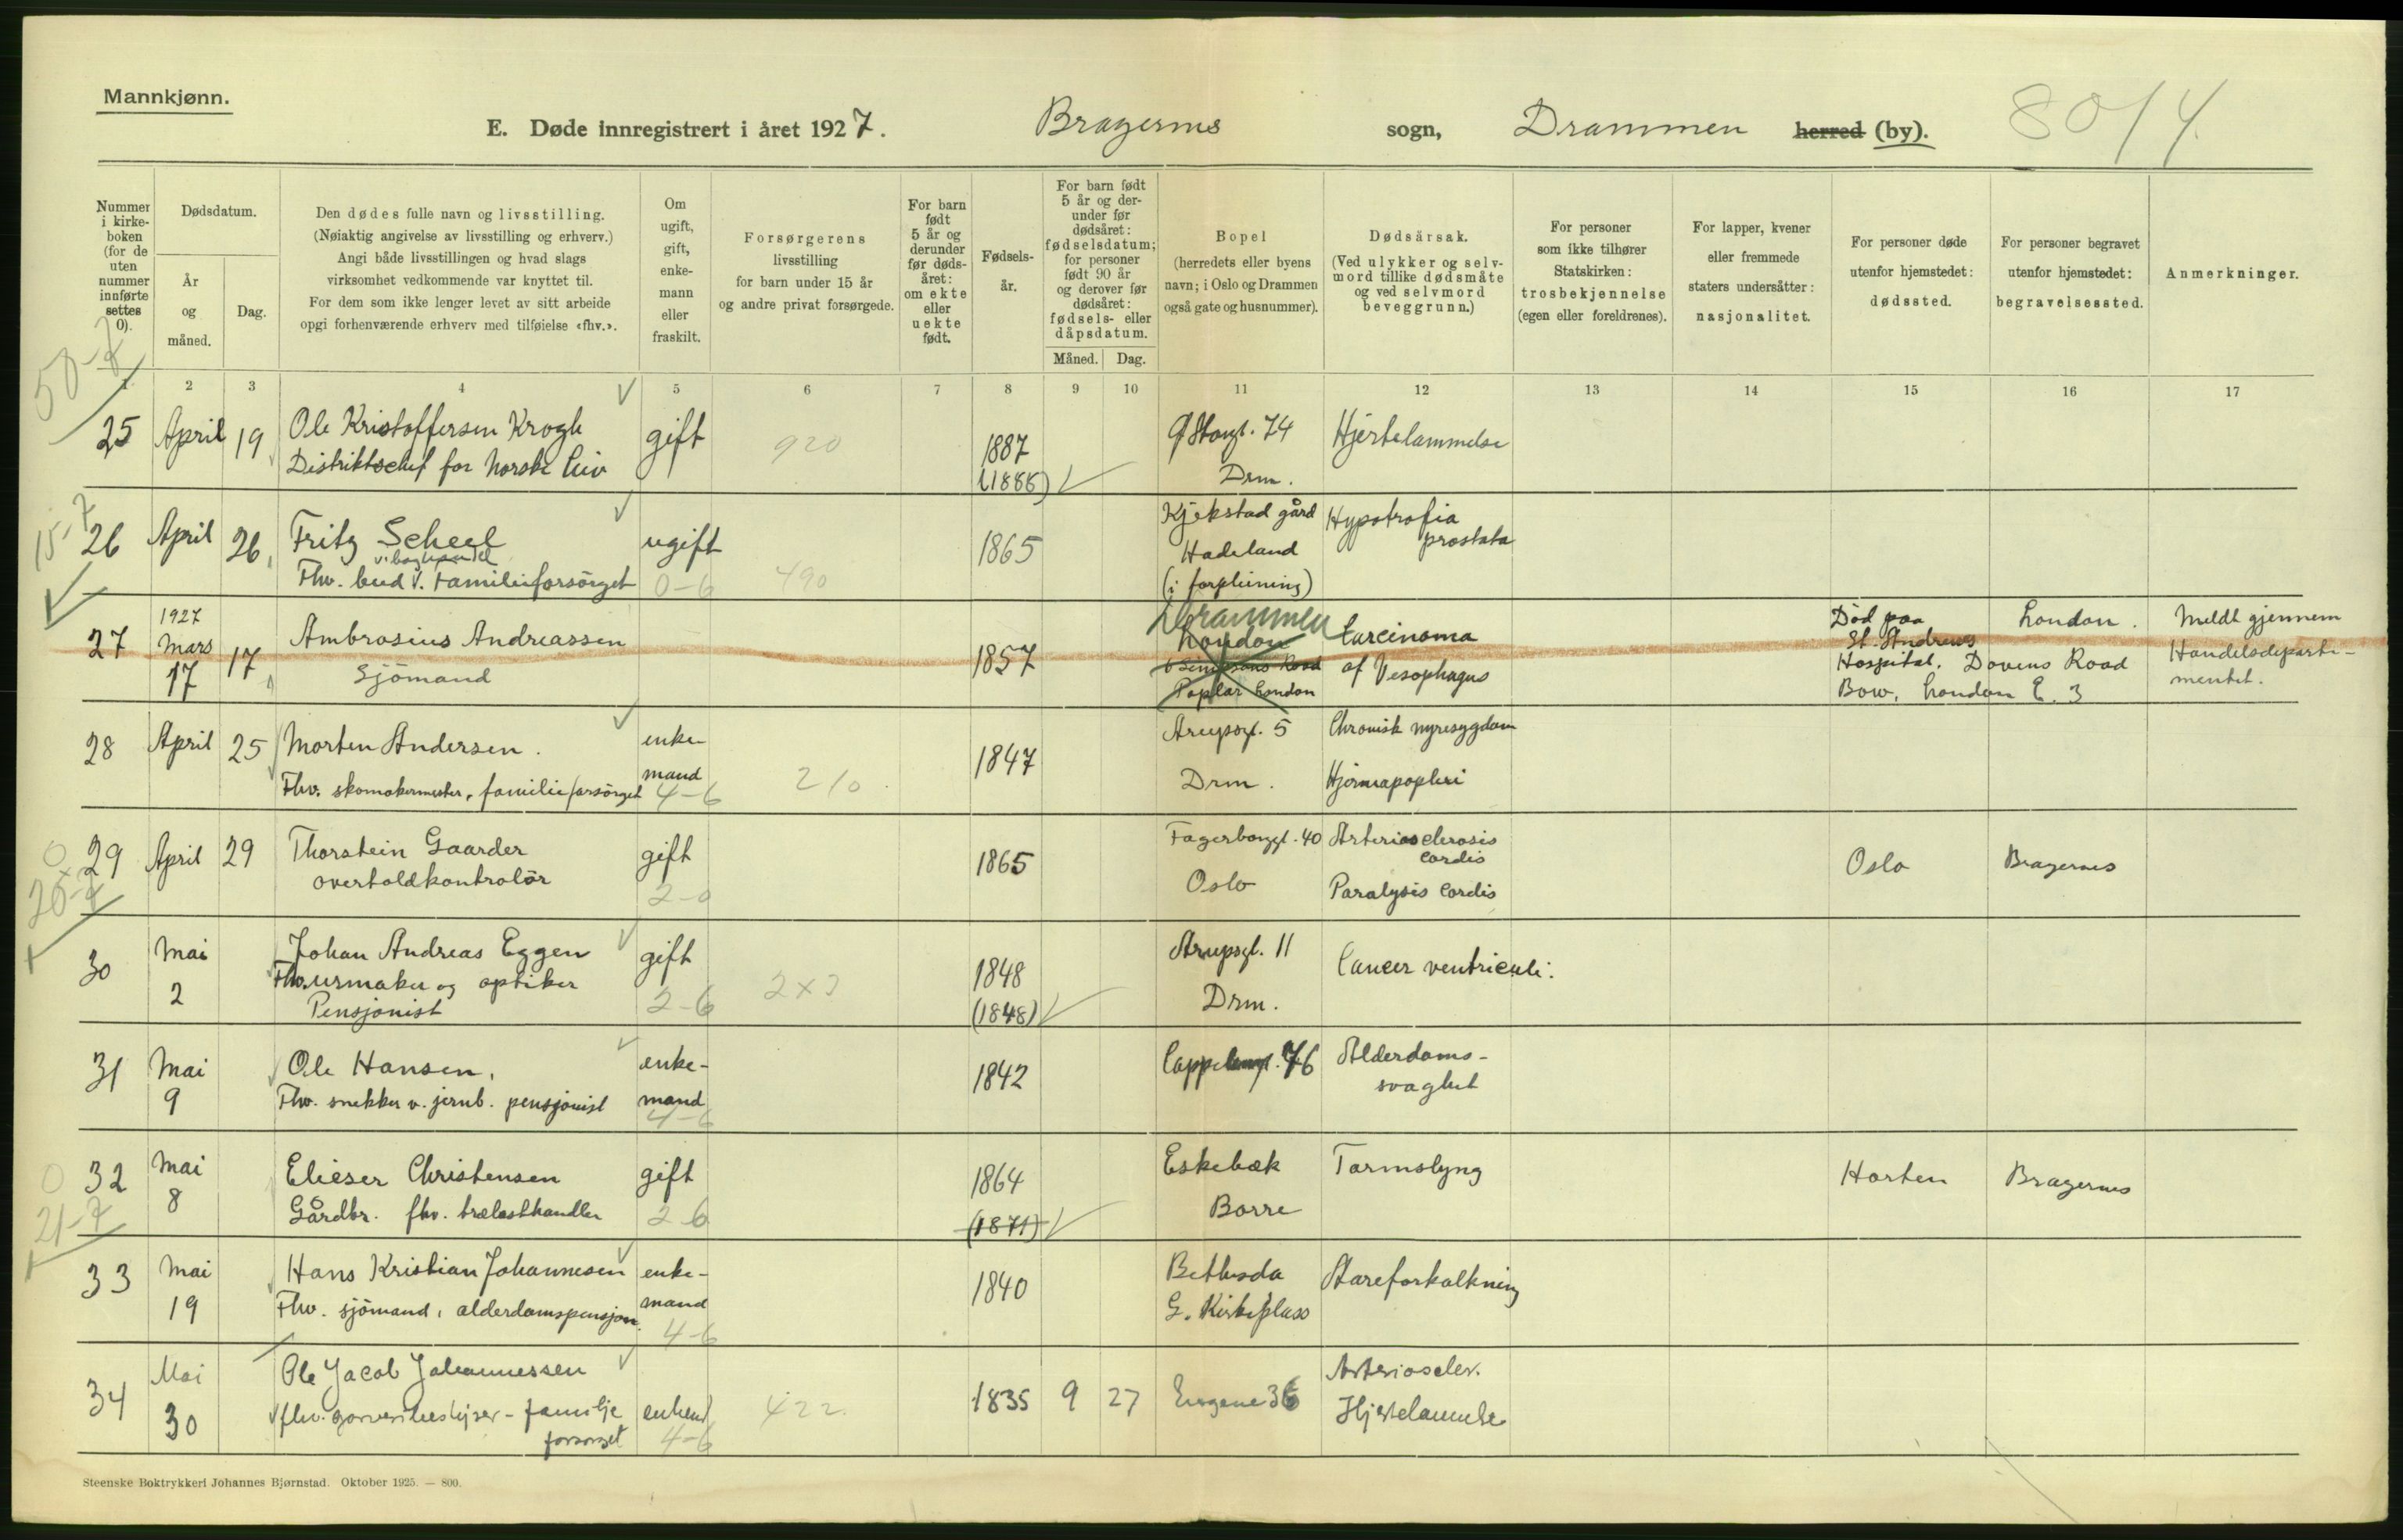 Mannkjønn.
E. Døde innregistrert i året 1927. Bragernes sogn, Drammen herred (by). 80/4.
Nummer i kirke-boken (for de uten nummer innførte settes 0).
Dødsdatum.
År og måned.
Dag.
Den dødes fulle navn og livsstilling.
(Nøiaktig angivelse av livsstilling og erhverv.)
Angi både livsstillingen og hvad slags
virksomhet vedkommende var knyttet til.
For dem som ikke lenger levet av sitt arbeide
opgi forhenværende erhverv med tilføielse «fhv.».
Om ugift, gift, enke-mann eller fraskilt.
Forsørgerens
livsstilling
for barn under 15 år
og andre privat forsørgede.
For barn født 5 år og derunder før døds-året: om ekte eller uekte født.
Fødsels-år.
For barn født 5 år og der-under før dødsåret: fødselsdatum; for personer født 90 år og derover før dødsåret: fødsels- eller dåpsdatum.
Måned. Dag.
Bopel
(herredets eller byens
navn; i Oslo og Drammen
også gate og husnummer).
Dødsårsak.
(Ved ulykker og selv-
mord tillike dødsmåte
og ved selvmord
beveggrunn.)
For personer
som ikke tilhører
Statskirken:
trosbekjennelse
(egen eller foreldrenes).
For lapper, kvener
eller fremmede
staters undersåtter:
nasjonalitet.
For personer døde
utenfor hjemstedet:
dødssted.
For personer begravet
utenfor hjemstedet:
begravelsessted.
Anmerkninger.
1 2 3 4 5 6 7 8 9 10 11 12 13 14 15 16 17
50-7
25 April 19 Ole Kristoffersen Krogh gift 920 1887 74 Hjertelammelse
Distriktschef for Norske Liv (1888) Drm.
15-7
26 April 26 Fritz Scheel ugift 1865 Kjekstad gård Hypotrofia
Hadeland prostata
Fhv. bud v. Familieforsörget 0-6 490 (i forpleining)
1927 Drammen
27 Mars 17 Ambrosius Andreassen 1857 London Carcinoma Död paa London. Meldt gjennem
17 Sjömand Road of Vesophagus St. Andrews Handelsdeparte-
Poplar London Hospital. Dovens Road mentet.
Bow. London E. 3
28 April 25 Morten Andersen. enke- 1847 Arupsgt. 5 Chronisk nyresygdom
Fhv. skomakermester, familieforsörget mand 4-6 210 Drm. Hjerneapopleri
29 April 29 Thorstein Gaarder gift 1865 Fagerborggt. 40 Arteriosclerosis Cordis Oslo Bragernes
overtoldkontrolör 2-0 Oslo Paralysis Cordis
20-7
30 Mai Johan Andreas Eggen gift 1848 Arupsgt. 11 Cancer ventriculi.
2 Fhv. urmaker og optiker 2-6 (1848) Drm.
Pensjonist
31 Mai Ole Hansen, enke- 1842 76 Alderdoms-
9 Fhv. snekker v. jernb. pensjonist mand 4-6 svaghet
0 32 Mai Elieser Christensen gift 1864 Eskebæk Tarmslyng Horten Bragernes
8 Gårdbr. fhv. trælasthandler 2-6 (1871) Borre
21-7
33 Mai Hans Kristian Johannesen enke- 1840 Bethesda Åreforkalkning
19 Fhv. sjömand, alderdomspensjon. mand 4-6 G. Kirkeplass
34 Mai Ole Jacob Johannessen 1835 9 27 Eugene 36 Arterioscler.
30 fhv. - familje enkem 4-6 422 Hjertelammelse
forsørget
Steenske Boktrykkeri Johannes Bjørnstad. Oktober 1925. — 800.